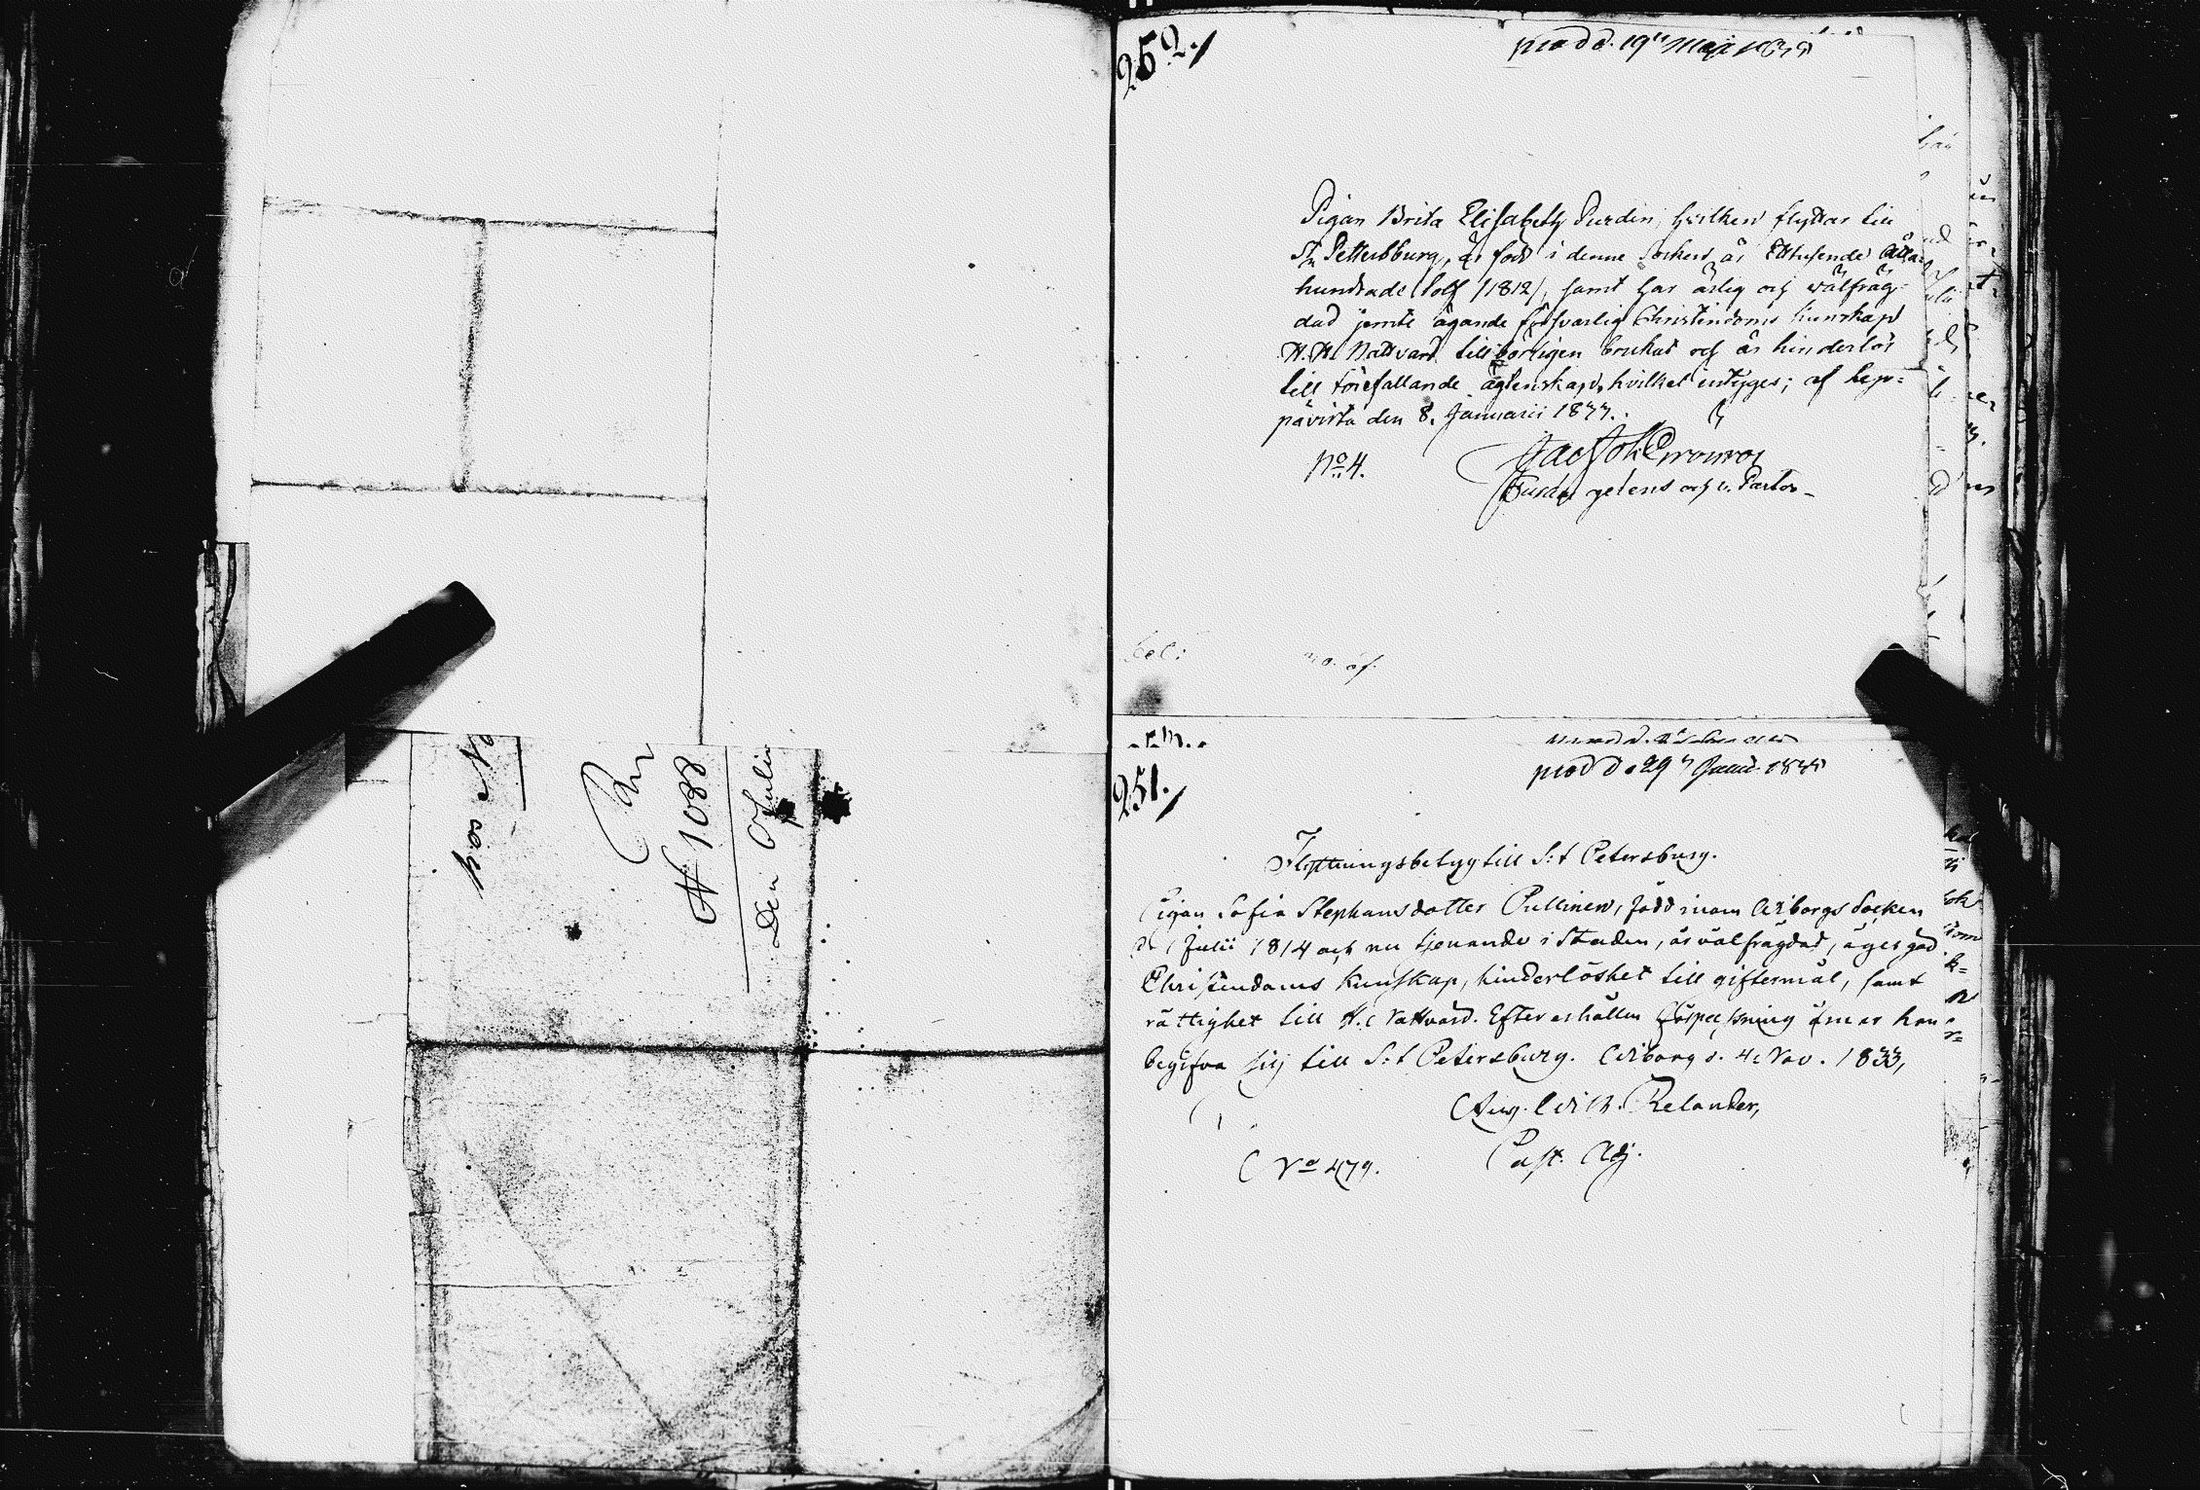 hos
№ 1088
Den Julii
252./
prod d. 19 Maji
Pigan Brita Elisabeth Purdin, hvilken flyttar till
St Pettersburg, är född i denne Socken år Ettusende Åtta
hundrade tolf /1812/, samt har ärlig och wälfräg-
dad jemte ägande försvarlig Christendoms kunskap
H. H. Nattvard tillbörligen brukat och är hinderlös
till förefallande ägtenskap, hvilket intygas; af Lep=
pävirta den 8. Januarii 1833.
No 4.
v. Pastor
251./
prod d. 29 Junii
Flyttningsbetyg till S:t Petersburg.
Pigan Sofia Stephansdotter Pullinen, född inom Wiborgs Socken
d. 1 Julii 1814 och nu tjenande i Staden, är välfrägdad, äger god
Christendoms Kunskap, hinderlöshet till giftermål, samt
rättighet till H. Nattvard. Efter erhållen förpassning ämnar hon
begifva sig till S:t Petersburg. Wiborg d. 4 Nov. 1833,
Aug. Wilh. Relander,
Past. Adj.
No 479.